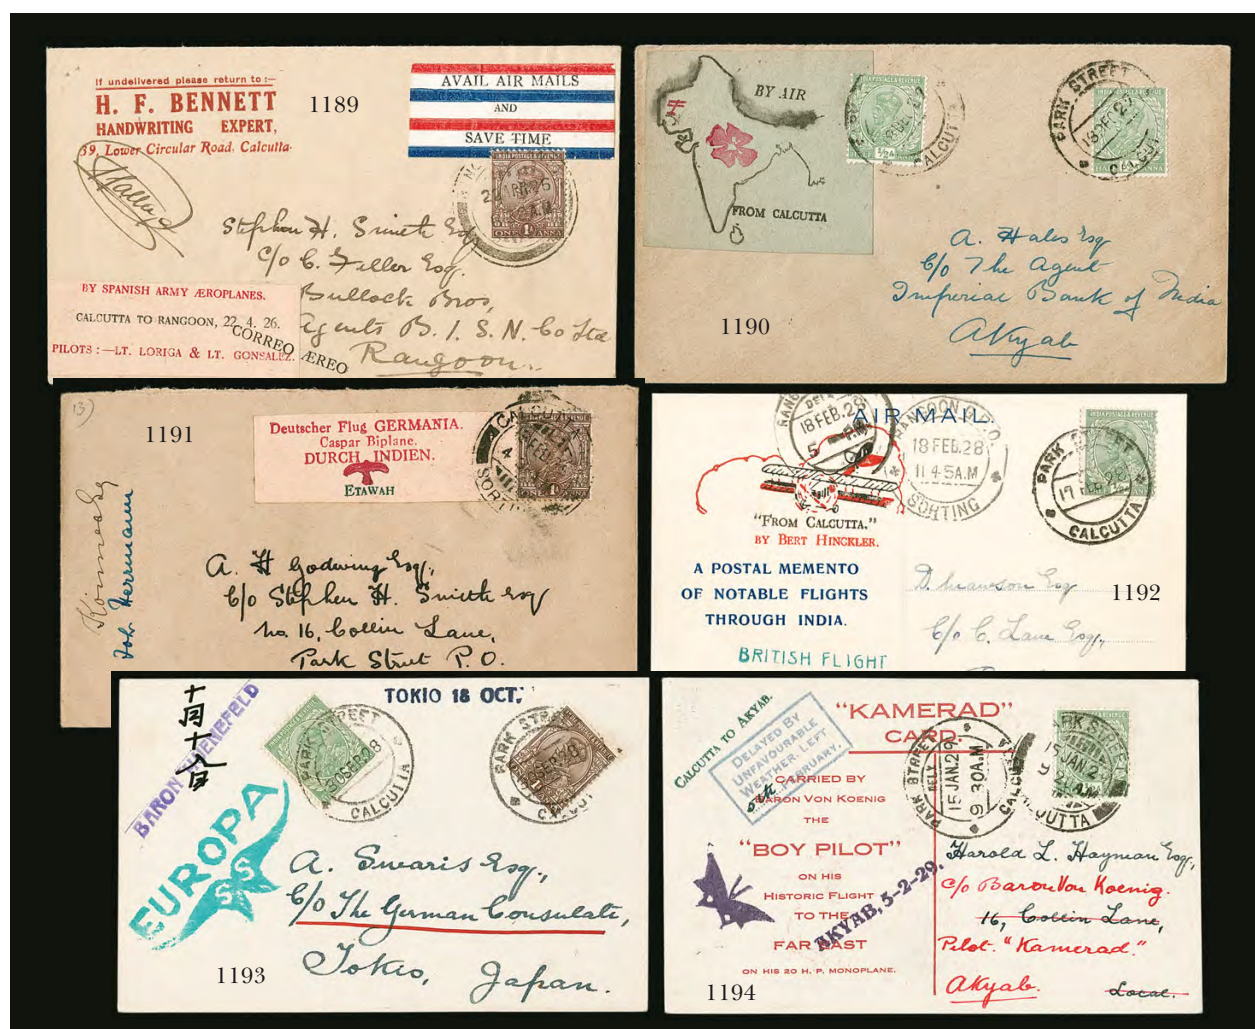 If undelivered please return to :—
H. F. BENNETT
HANDWRITING EXPERT,
39, Lower Circular Road, Calcutta.
1189
AVAIL AIR MAILS
AND
SAVE TIME
INDIA POSTAGE & REVENUE
ONE 1A ANNA
Stephen H. Smith Esq
C/o C. Feller Esq.
Bullock Bros,
Agents B. I. S. N. Co Ltd
Rangoon.
BY SPANISH ARMY ÆROPLANES.
CALCUTTA TO RANGOON, 22. 4. 26.
CORREO ÆREO
PILOTS :—LT. LORIGA & LT. GONSALEZ.
BY AIR
FROM CALCUTTA
INDIA POSTAGE & REVENUE
CALCUTTA
PARK STREET
CALCUTTA
A. Hales Esq
C/o The Agent
Imperial Bank of India
Akyab
1190
13)
1191
Deutscher Flug GERMANIA.
Caspar Biplane.
DURCH INDIEN.
ETAWAH
CALCUTTA
Joh. Herrmann
A. H Godwing Esq.,
C/o Stephen H. Smith Esq
No. 16, Collin Lane,
Park Street P. O.
AIR MAIL.
18 FEB.28
RANGOON G.P.O.
18 FEB.28
11 45A.M
SORTING
PARK STREET
CALCUTTA
"FROM CALCUTTA."
BY BERT HINCKLER.
A POSTAL MEMENTO
OF NOTABLE FLIGHTS
THROUGH INDIA.
BRITISH FLIGHT
D. Mawson Esq
C/o C. Lane Esq.,
1192
十月十八日
BARON HUENEFELD
TOKIO 18 OCT.
PARK STREET
30SEP.28
CALCUTTA
PARK STREET
EUROPA
SS
A. Swaris Esq.,
C/o The German Consulate,
Tokio, Japan.
1193
CALCUTTA TO AKYAB.
DELAYED BY
UNFAVOURABLE
WEATHER. LEFT
5th FEBRUARY.
"KAMERAD"
CARD.
CARRIED BY
BARON VON KOENIG
THE
"BOY PILOT"
ON HIS
HISTORIC FLIGHT
TO THE
FAR EAST
ON HIS 20 H. P. MONOPLANE.
AKYAB, 5-2-29.
PARK STREET
DELY
15JAN.29
9 30AM
CALCUTTA
Harold L. Hayman Esq.,
C/o Baron Von Koenig.
16, Collin Lane,
Pilot. "Kamerad"
Akyab.
Local.
1194